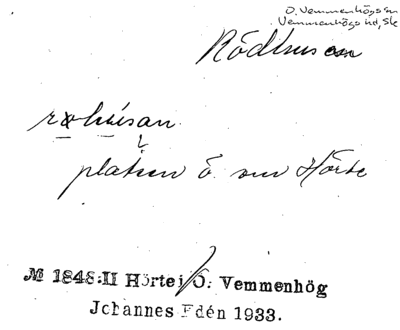 Ö. Vemmenhögs sn
Vemmenhögs hd, Sk
Rödhusen
røhúsan
platsen ö. om Hörte
№ 1848:II Hörte i Ö. Vemmenhög
Johannes Edén 1933.